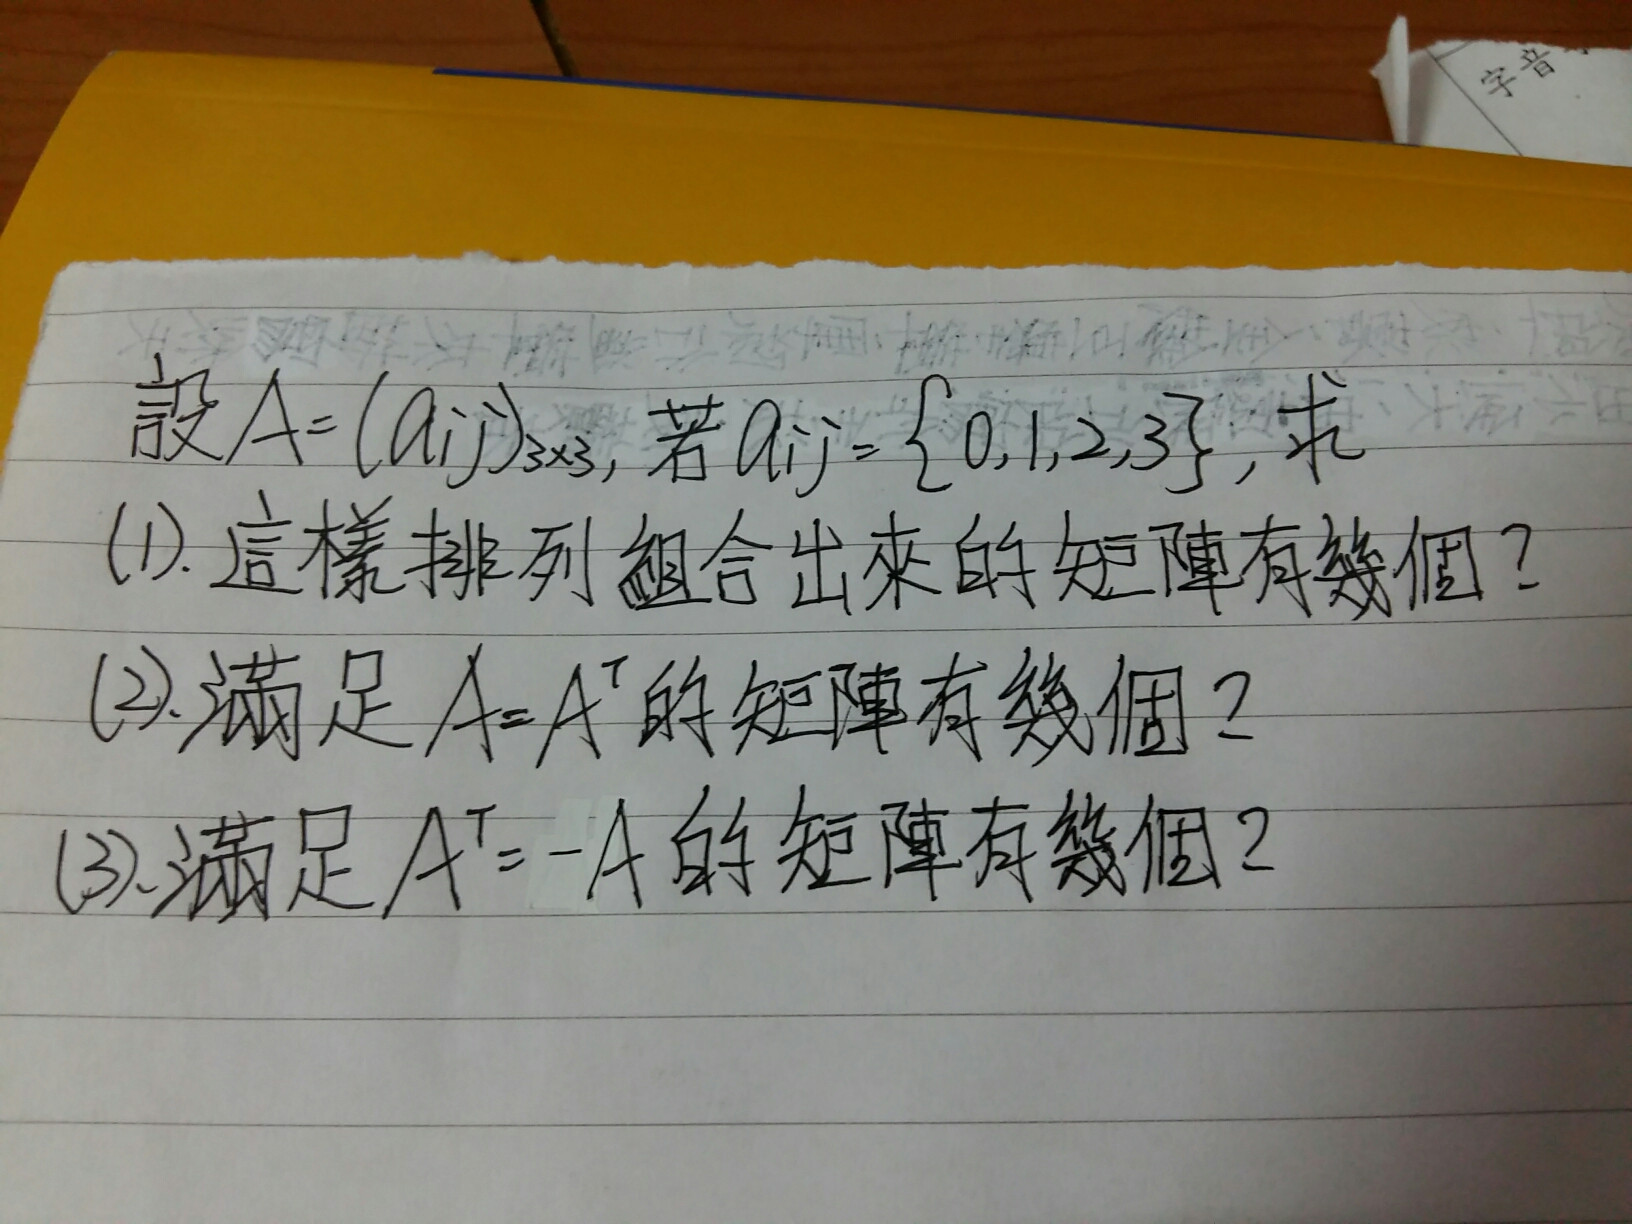 字音
設A=(aij)3×3, 若aij={0,1,2,3}, 求
(1). 這樣排列組合出來的矩陣有幾個?
(2). 滿足 A=Aᵀ的矩陣有幾個?
(3). 滿足 Aᵀ=-A 的矩陣有幾個?